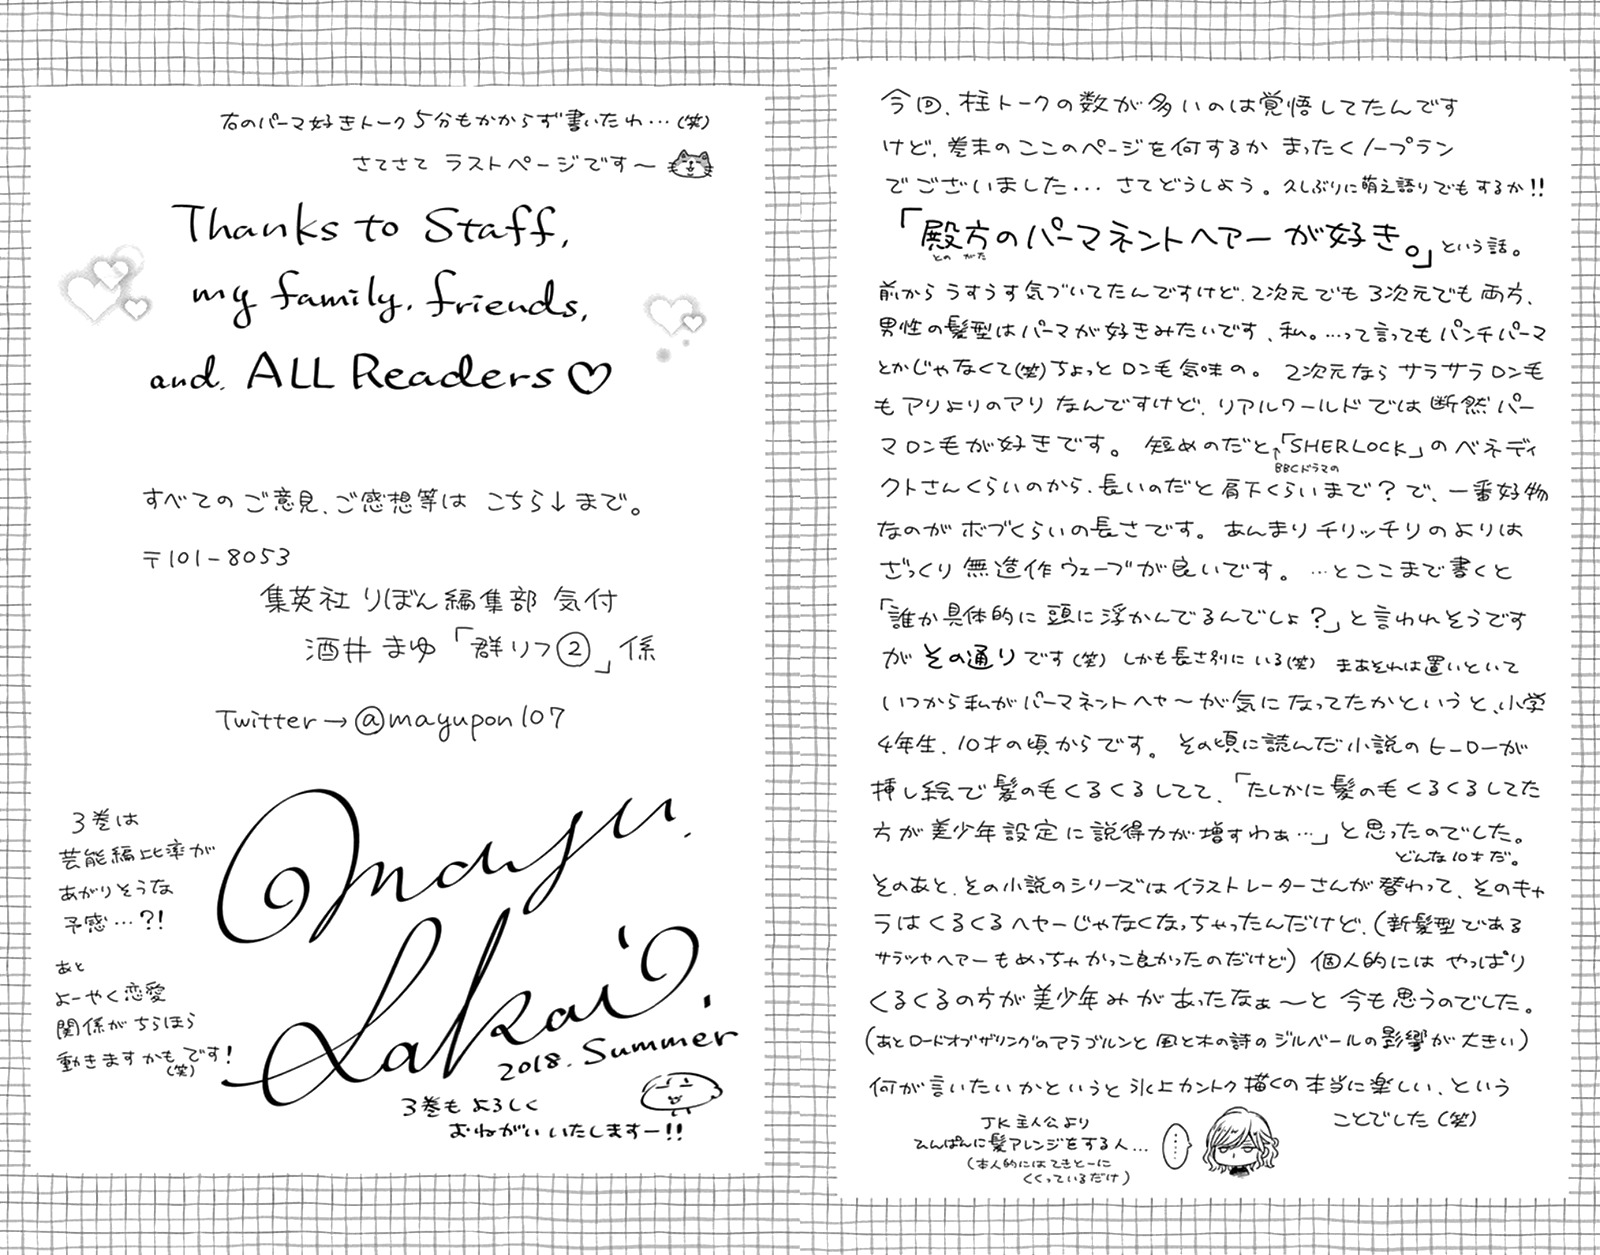 今回、柱トークの数が多いのは覚悟してたんです
けど、巻末のここのページを何するか まったくノープラン
でございました… さてどうしよう。久しぶりに萌え語りでもするか!!
「殿方のパーマネントヘアーが好き。」という話。
とのがた
前から うすうす気づいてたんですけど、2次元でも 3次元でも 両方、
男性の髪型はパーマが好きみたいです、私。…って言っても パンチパーマ
とかじゃなくて(笑)ちょっと ロン毛気味の。 2次元なら サラサラロン毛
もアリよりのアリ なんですけど、リアルワールドでは断然パー
マロン毛が好きです。 短めのだと「SHERLOCK」のベネディ
↑BBCドラマの
クトさんくらいのから、長いのだと 肩下くらいまで? で、一番好物
なのが ボブくらいの長さです。 あんまりチリッチリのよりは
ざっくり 無造作ウェーブが良いです。 …とここまで書くと
「誰か具体的に 頭に浮かんでるんでしょ?」と言われそうです
が その通りです(笑) しかも長さ別にいる(笑) まあそれは置いといて
いつから私が パーマネントヘヤ〜が気になってたかというと、小学
4年生、10才の頃からです。 その頃に読んだ小説のヒーローが
挿し絵で髪の毛くるくるしてて、「たしかに髪の毛くるくるしてた
方が美少年設定に説得力が増すわぁ…」と思ったのでした。
どんな10才だ。
そのあと、その小説のシリーズはイラストレーターさんが替わって、そのキャ
ラは くるくるヘヤーじゃなくなっちゃったんだけど、(新髪型である
サラツヤヘアーもめっちゃかっこ良かったのだけど) 個人的には やっぱり
くるくるの方が美少年みがあったなぁ〜と 今も思うのでした。
(あとロードオブザリングのアラゴルンと 風と木の詩のジルベールの影響が大きい)
何が言いたいかというと 氷上カントク描くの本当に楽しい、という
ことでした(笑)
JK主人公より
ひんぱんに髪アレンジをする人…
(本人的にはてきとーに
くくっているだけ)
……
右のパーマ好きトーク 5分もかからず書いたわ…(笑)
さてさて ラストページです〜
Thanks to Staff,
my family, friends,
and, ALL Readers♡
すべての ご意見、ご感想等は こちら↓まで。
〒101-8053
集英社 りぼん編集部 気付
酒井 まゆ「群リフ②」係
Twitter→@mayupon107
3巻は
芸能編比率が
あがりそうな
予感…?!
あと
よーやく恋愛
関係が ちらほら
動きますかも です!
(笑)
Mayu.
Sakai.
2018. Summer
3巻も よろしく
おねがいいたしますー!!